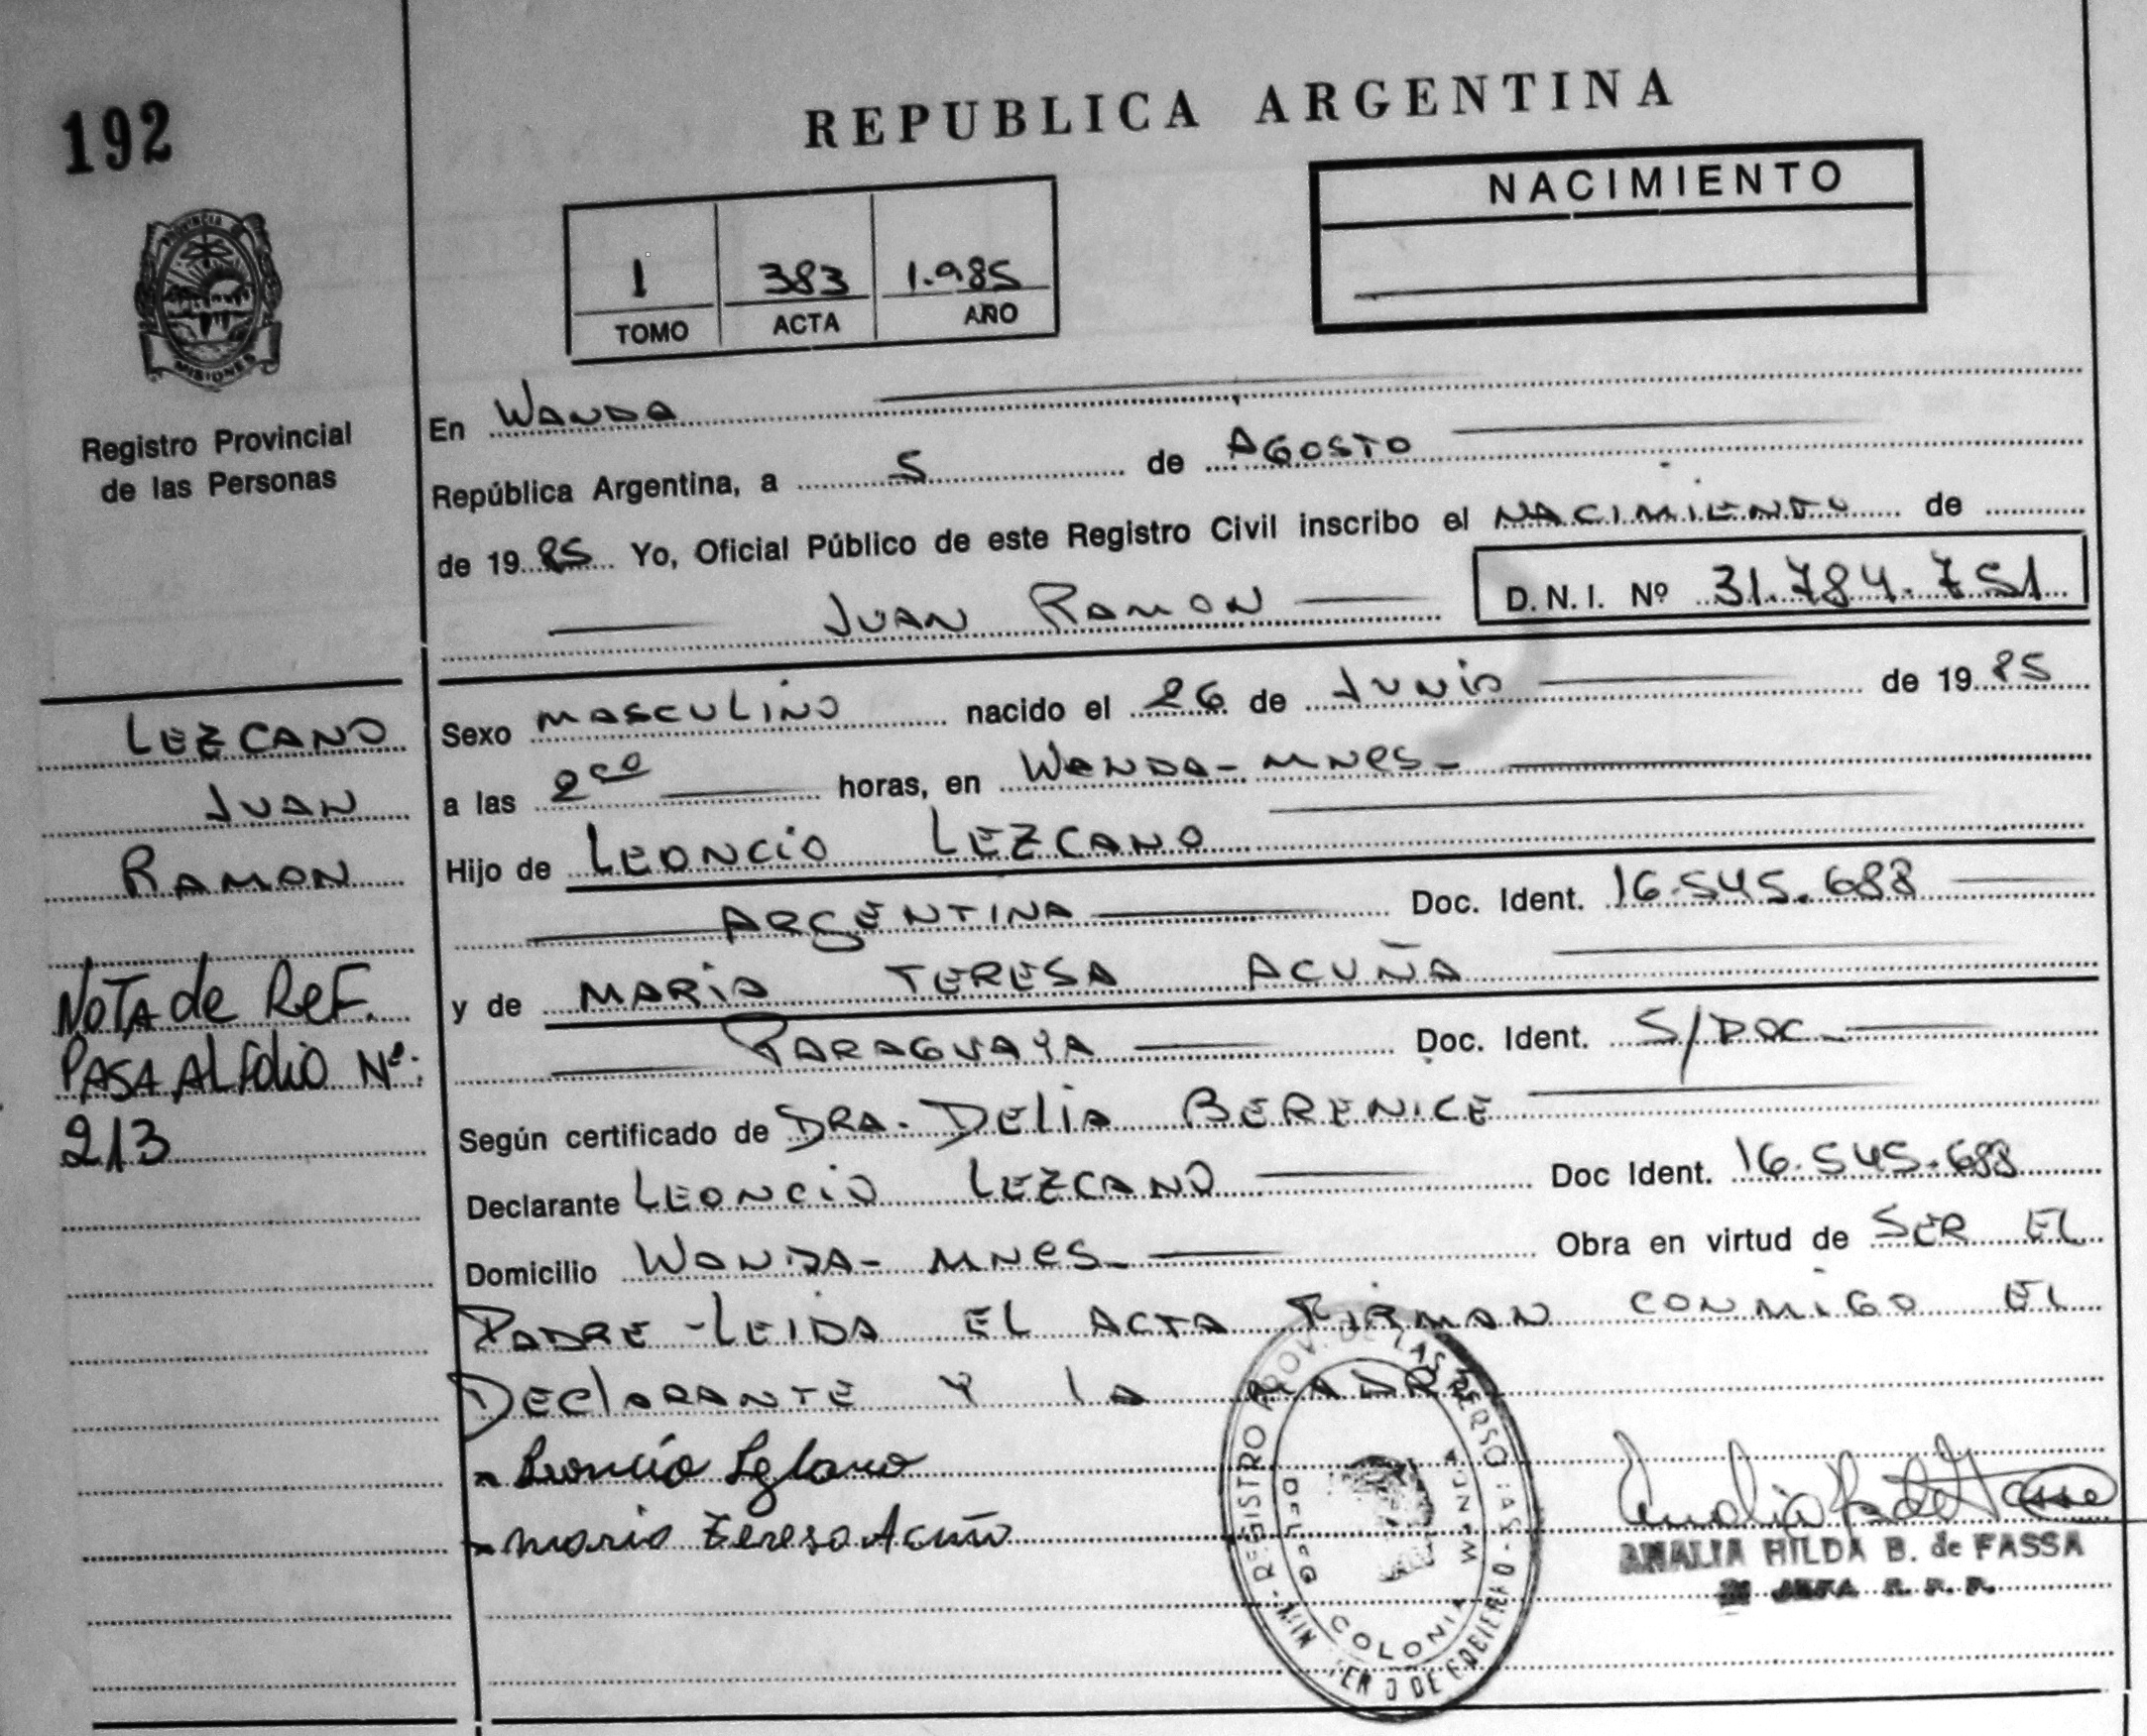 192
REPUBLICA ARGENTINA
NACIMIENTO
1 383 1.985
TOMO ACTA AÑO
PROVINCIA DE
MISIONES
Registro Provincial
de las Personas
En WANDA
República Argentina, a 5 de AGOSTO
de 1985 Yo, Oficial Público de este Registro Civil inscribo el NACIMIENTO de
JUAN RAMON D.N.I. Nº 31.784.751
LEZCANO
JUAN
RAMON
NOTA de ReF.
PASA Al folio Nº:
213
Sexo MASCULINO nacido el 26 de JUNIO de 1985
a las 2 00 horas, en WANDA-MNES-
Hijo de LEONCIO LEZCANO
ARGENTINA Doc. Ident. 16.545.688
y de MARIA TERESA ACUÑA
PARAGUAYA Doc. Ident. S/DOC-
Según certificado de DRA. DELIA BERENICE
Declarante LEONCIO LEZCANO Doc Ident. 16.545.688
Domicilio WANDA-MNES- Obra en virtud de SER EL
PADRE-LEIDA EL ACTA FIRMAN CONMIGO EL
DECLARANTE Y LA MADRE
Leoncio Lezcano
Maria Teresa Acuña
REGISTRO PROV. DE LAS PERSONAS
COLONIA WANDA
AMALIA HILDA B. de FASSA
JEFA R. P. P.